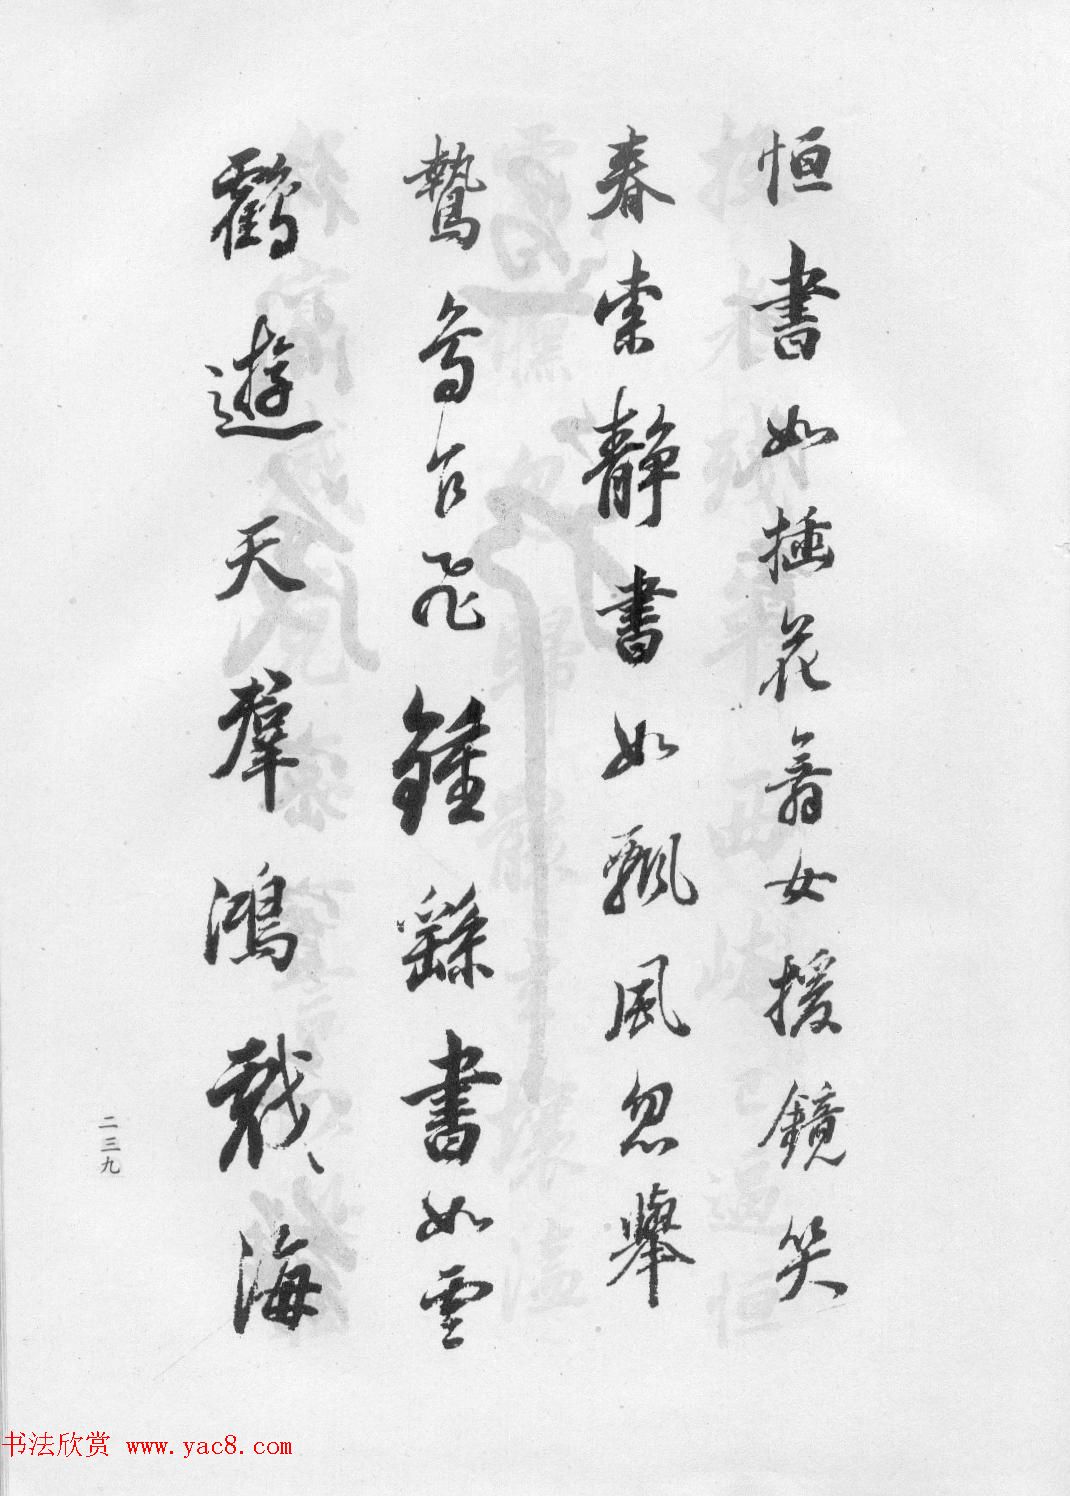 恒書如插花舞女援鏡笑
春索靖書如飄風忽舉
鷙鳥乍飛鍾繇書如雲
鶴遊天群鴻戲海
二三九
书法欣赏 www.yac8.com